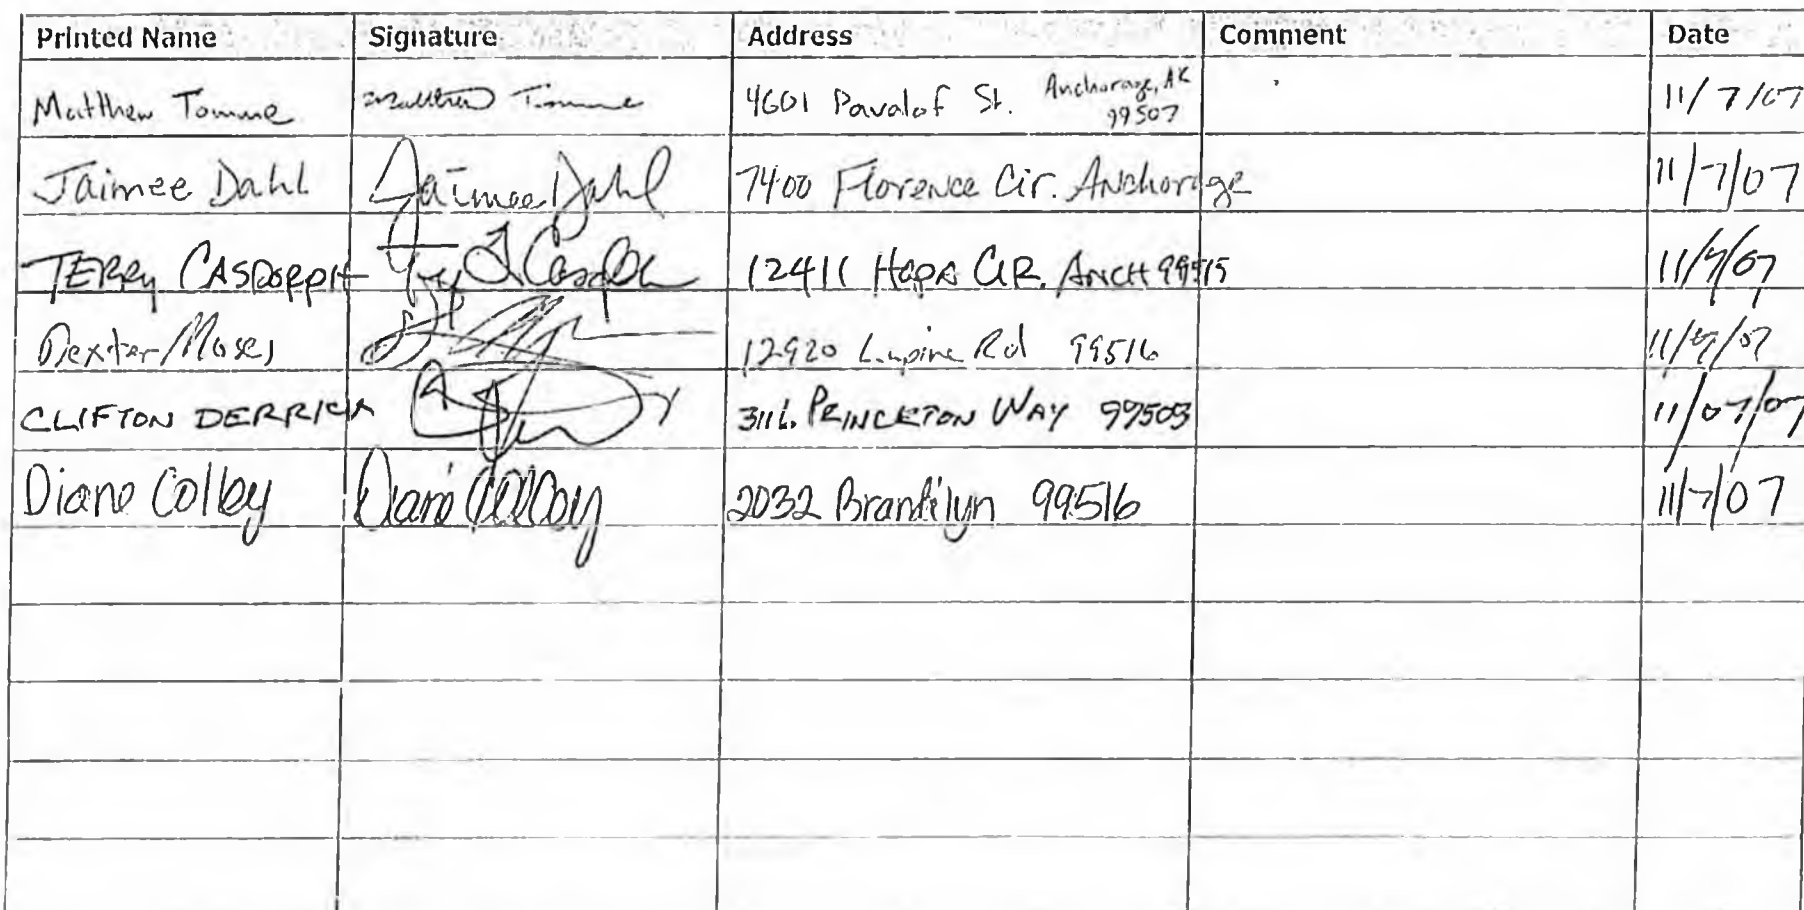 Printed Name Signature Address Comment Date
Matthew Tomme Matthew Tomme 4601 Pavalof St. Anchorage, AK 99507 11/7/07
Jaimee Dahl Jaimee Dahl 7400 Florence Cir. Anchorage 11/7/07
TERRY CASDORPH 12411 HOPE CIR. ANCH 99515 11/7/07
Dexter Moses 12920 Lupine Rd 99516 11/7/07
CLIFTON DERRICK 3116 PRINCETON WAY 99503 11/07/07
Diane Colby Diane Colby 2032 Brandilyn 99516 11/7/07